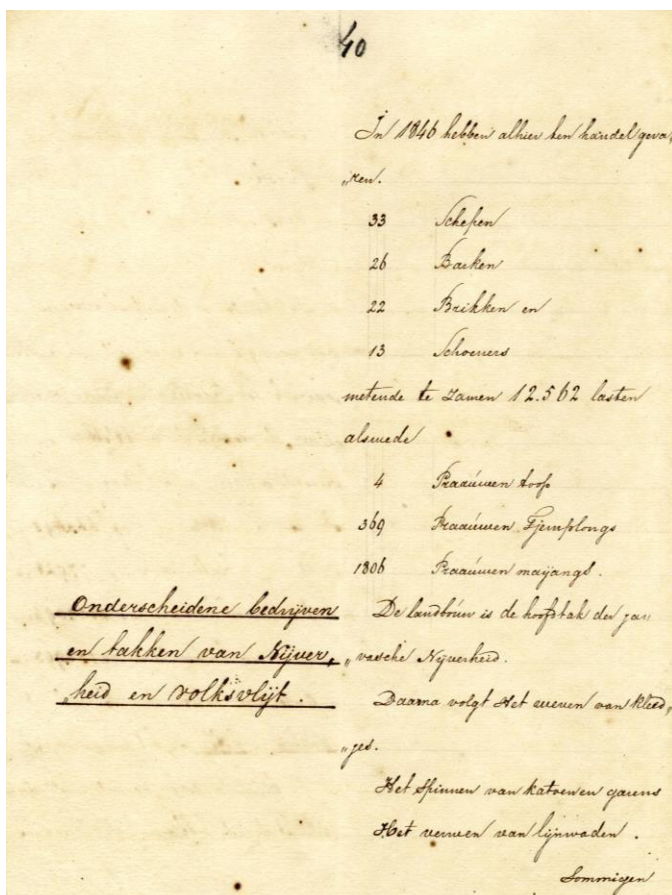 40
In 1846 hebben alhier ten handel geva„
„ren.
33 Schepen
26 Barken
22 Brikken en
13 Schoeners
metende te zamen 12.562 lasten
alsmede
4 Praauwen toop
369 Praauwen Tjemplongs
1806 Praauwen mayangs.
Onderscheidene bedrijven
en takken van Nijver„
„heid en volksvlijt.
De landbouw is de hoofdtak der jav
„vasche Nijverheid.
Daarna volgt Het weven van kleed„
„jes.
Het spinnen van katoenen garens
Het verwen van lijnwaden.
Sommigen